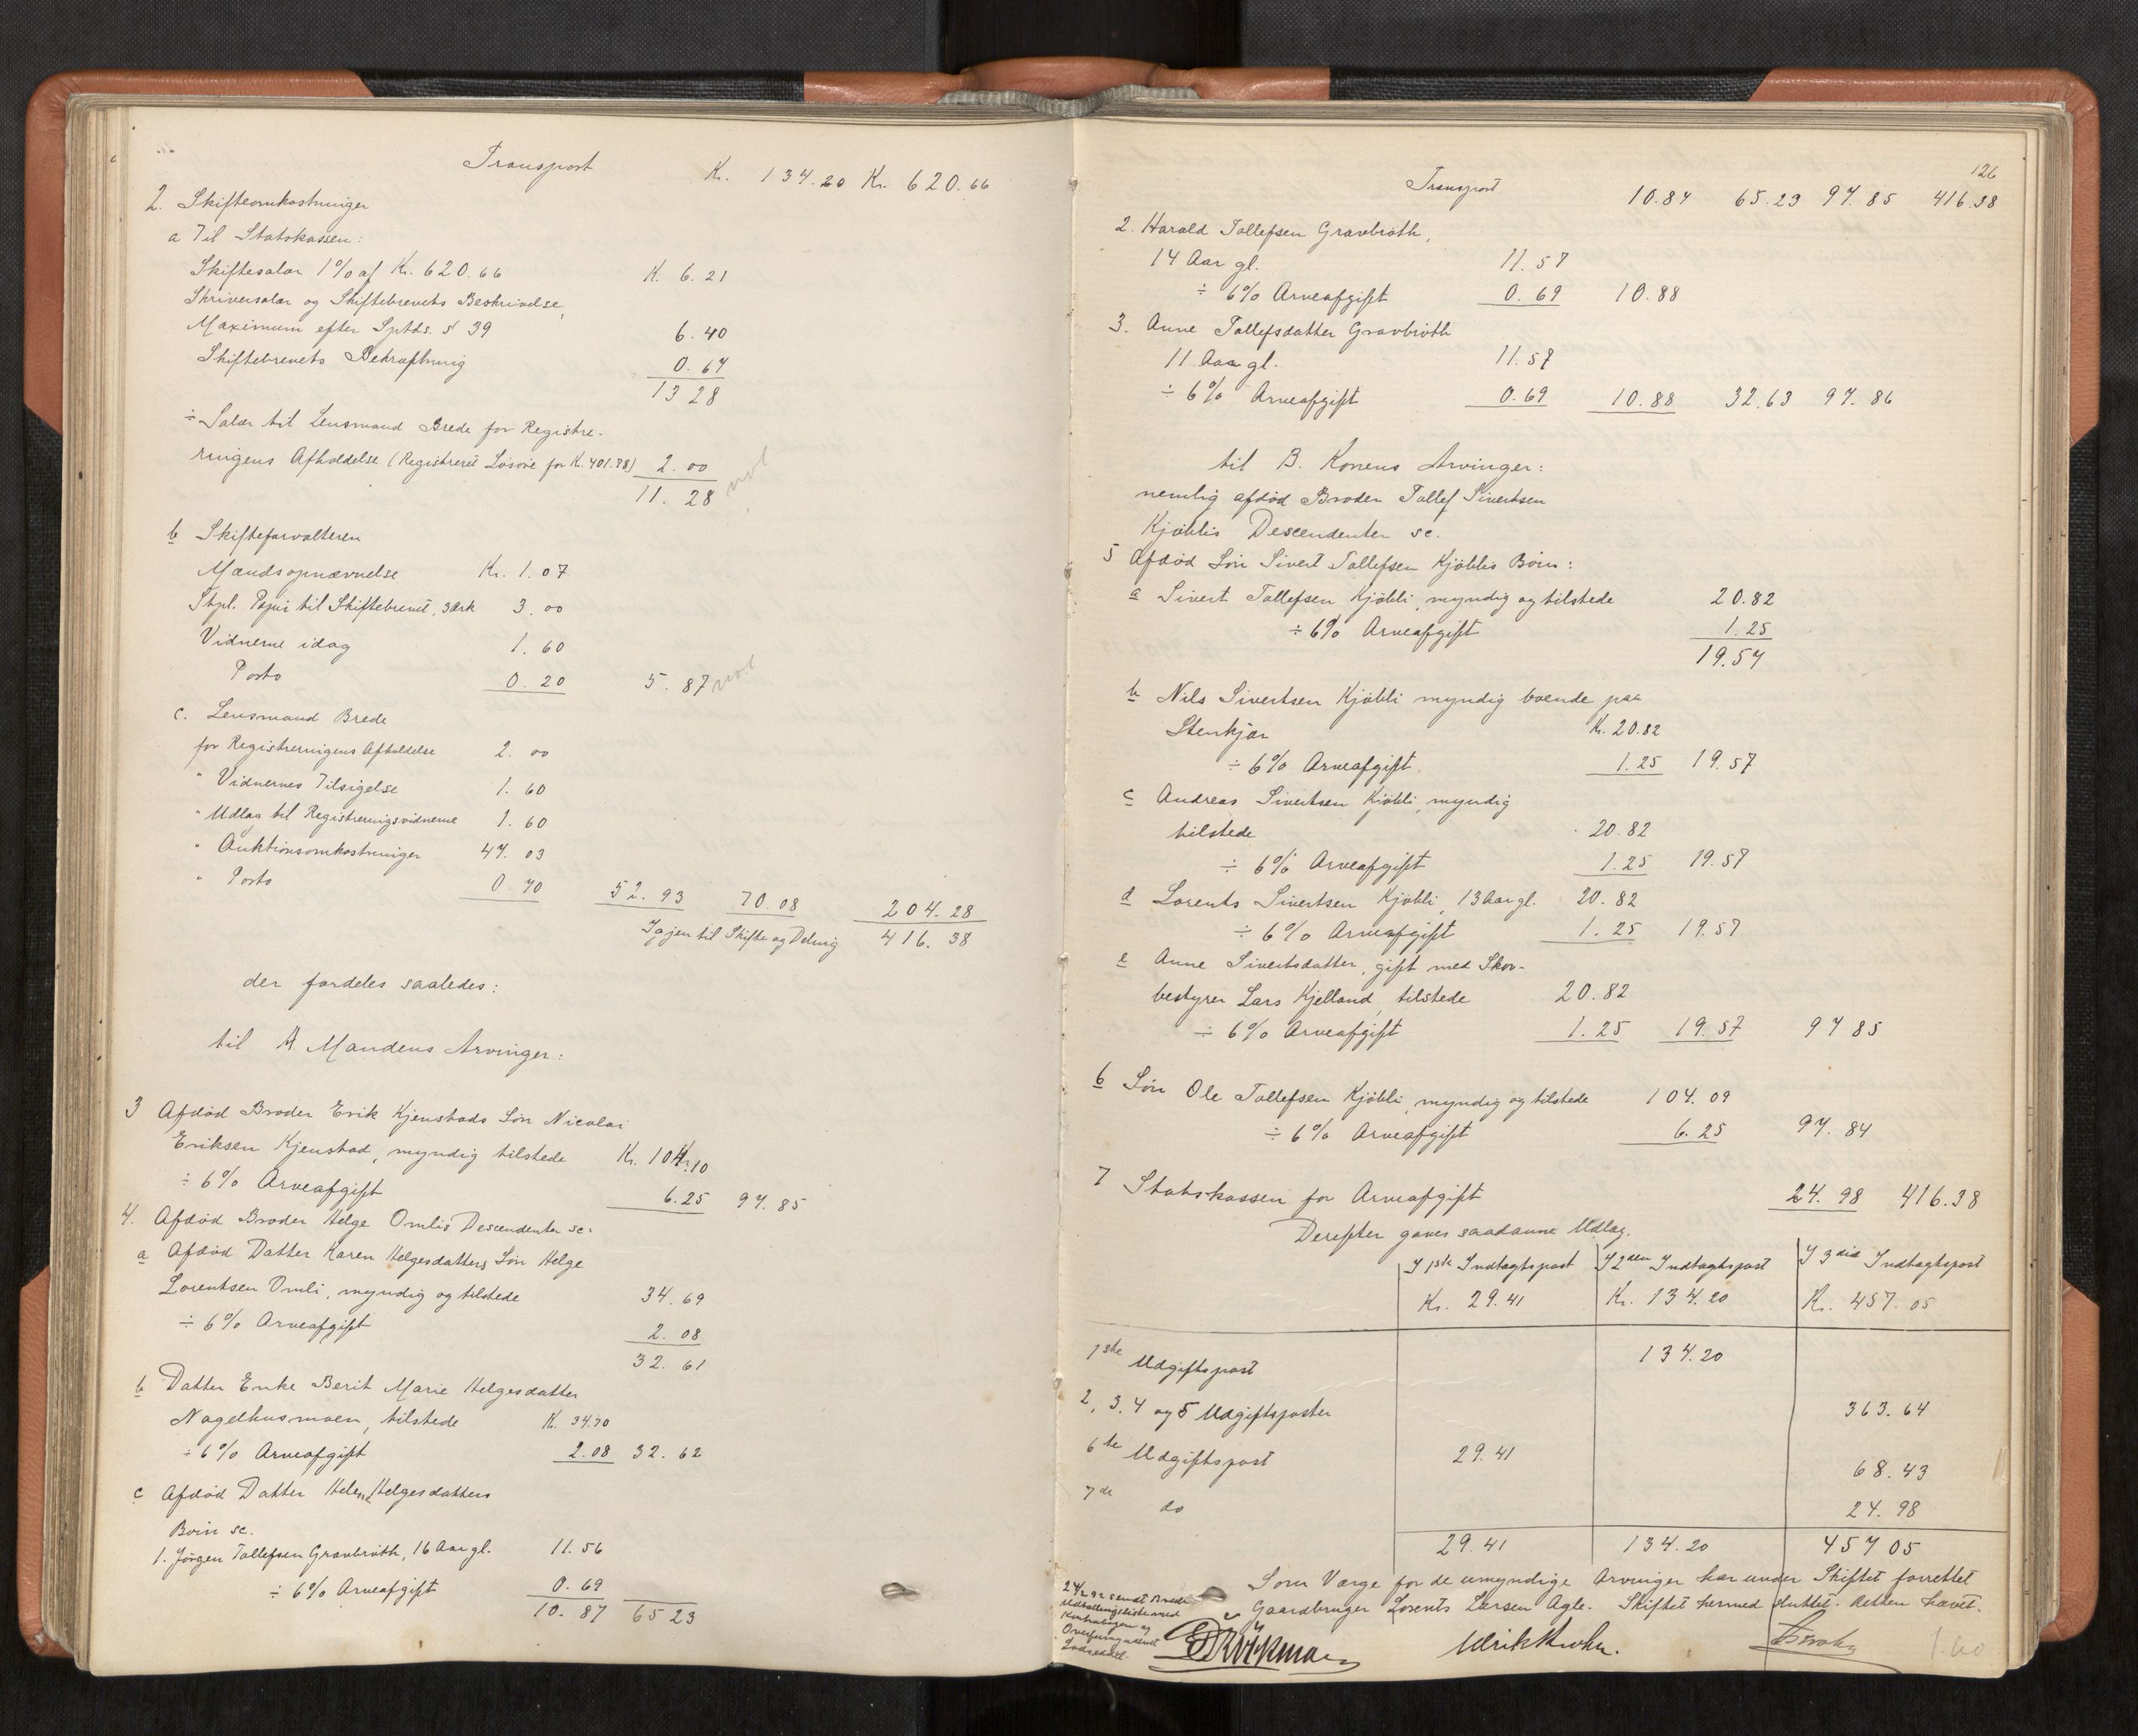 Transport Kr. 134.20 Kr. 620.66
2. Skifteomkostninger
a Til Statskassen:
Skiftesalær 1% af Kr. 620.66 K. 6.21
Skriversalær og Skiftebrevets Beskrivelse,
Maximum efter Sptds. § 39 6.40
Skiftebrevets Bekræftning 0.67
13 28
÷ Salær til Lensmand Brede for Registre-
ringens Afholdelse (Registreret Løsøre for K. 401.78) 2.00
11.28
b Skifteforvalteren
Mændsopnævnelse Kr. 1.07
Stpl. Papir til Skiftebrevet, 3 Ark 3.00
Vidnerne idag 1.60
Porto 0.20 5.87
c. Lensmand Brede
for Registreringens Afholdelse 2.00
" Vidnernes Tilsigelse 1.60
" Udlæg til Registreringsvidnerne 1.60
" Auktionsomkostninger 47.03
" Porto 0.70 52.93 70.08 204.28
Igjen til Skifte og Deling 416.38
der fordeles saaledes:
til A Mandens Arvinger:
3 Afdød Broder Erik Kjenstads Søn Nicolai
Eriksen Kjenstad, myndig tilstede Kr. 104.10
÷ 6% Arveafgift 6.25 97.85
4. Afdød Broder Helge Omlis Descendenter sc.
a Afdød Datter Karen Helgesdatters Søn Helge
Lorentsen Omli, myndig og tilstede 34.69
÷ 6% Arveafgift 2.08
32.61
b Datter Enke Berit Marie Helgesdatter
Nagelhusmoen, tilstede K. 34.70
÷ 6% Arveafgift 2.08 32.62
c Afdød Datter Helene Helgesdatters
Børn sc.
1. Jørgen Tollefsen Gravbrøth, 16 Aar gl. 11.56
÷ 6% Arveafgift 0.69
10.87 65 23
126
Transport 10.87 65.23 97.85 416.38
2. Harald Tollefsen Gravbrøth,
14 Aar gl. 11.57
÷ 6% Arveafgift 0.69 10.88
3. Anne Tollefsdatter Gravbrøth
11 Aar gl. 11.57
÷ 6% Arveafgift 0.69 10.88 32.63 97.86
til B. Konens Arvinger:
nemlig afdød Broder Tollef Sivertsen
Kjøblis Descendenter sc.
5 Afdød Søn Sivert Tollefsen Kjøblis Børn:
a Sivert Tollefsen Kjøbli, myndig og tilstede 20.82
÷ 6% Arveafgift 1.25
19.57
b Nils Sivertsen Kjøbli myndig boende paa
Stenkjær Kr. 20.82
÷ 6% Arveafgift 1.25 19.57
c Andreas Sivertsen Kjøbli, myndig
tilstede 20.82
÷ 6% Arveafgift 1.25 19.57
d Lorents Sivertsen Kjøbli, 13 Aar gl. 20.82
÷ 6% Arveafgift 1.25 19.57
e Anne Sivertsdatter, gift med Skov-
bestyrer Lars Kjelland, tilstede 20.82
÷ 6% Arveafgift 1.25 19.57 97 85
6 Søn Ole Tollefsen Kjøbli, myndig og tilstede 104.09
÷ 6% Arveafgift 6.25 97.84
7 Statskassen for Arveafgift 24.98 416.38
Derefter gaves saadanne Udlæg.
I 1ste Indtægtspost I 2den Indtægtspost I 3die Indtægtspost
Kr. 29.41 Kr. 134.20 Kr. 457.05
1ste Udgiftspost 134.20
2, 3. 4 og 5 Udgiftsposter 363.64
6te Udgiftspost 29.41 68.43
7de do 24.98
29.41 134.20 457 05
Som Værge for de umyndige Arvinger har under Skiftet forrettet
Gaardbruger Lorents Larsen Agle. Skiftet hermed sluttet. Retten hævet.
Ulrik Krohn.
1.60